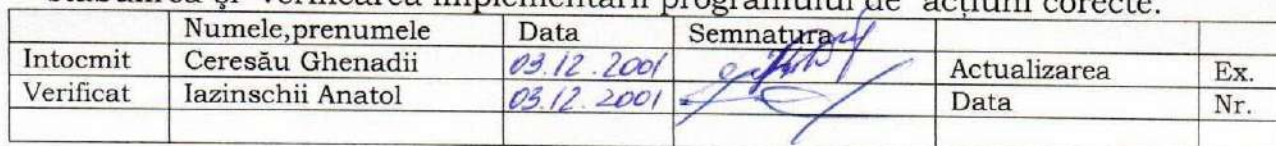 și verificarea implementării programului de acțiuni corecte.
Numele,prenumele Data Semnatura
Intocmit Ceresău Ghenadii 03.12.2001 Actualizarea Ex.
Verificat Iazinschii Anatol 03.12.2001 Data Nr.